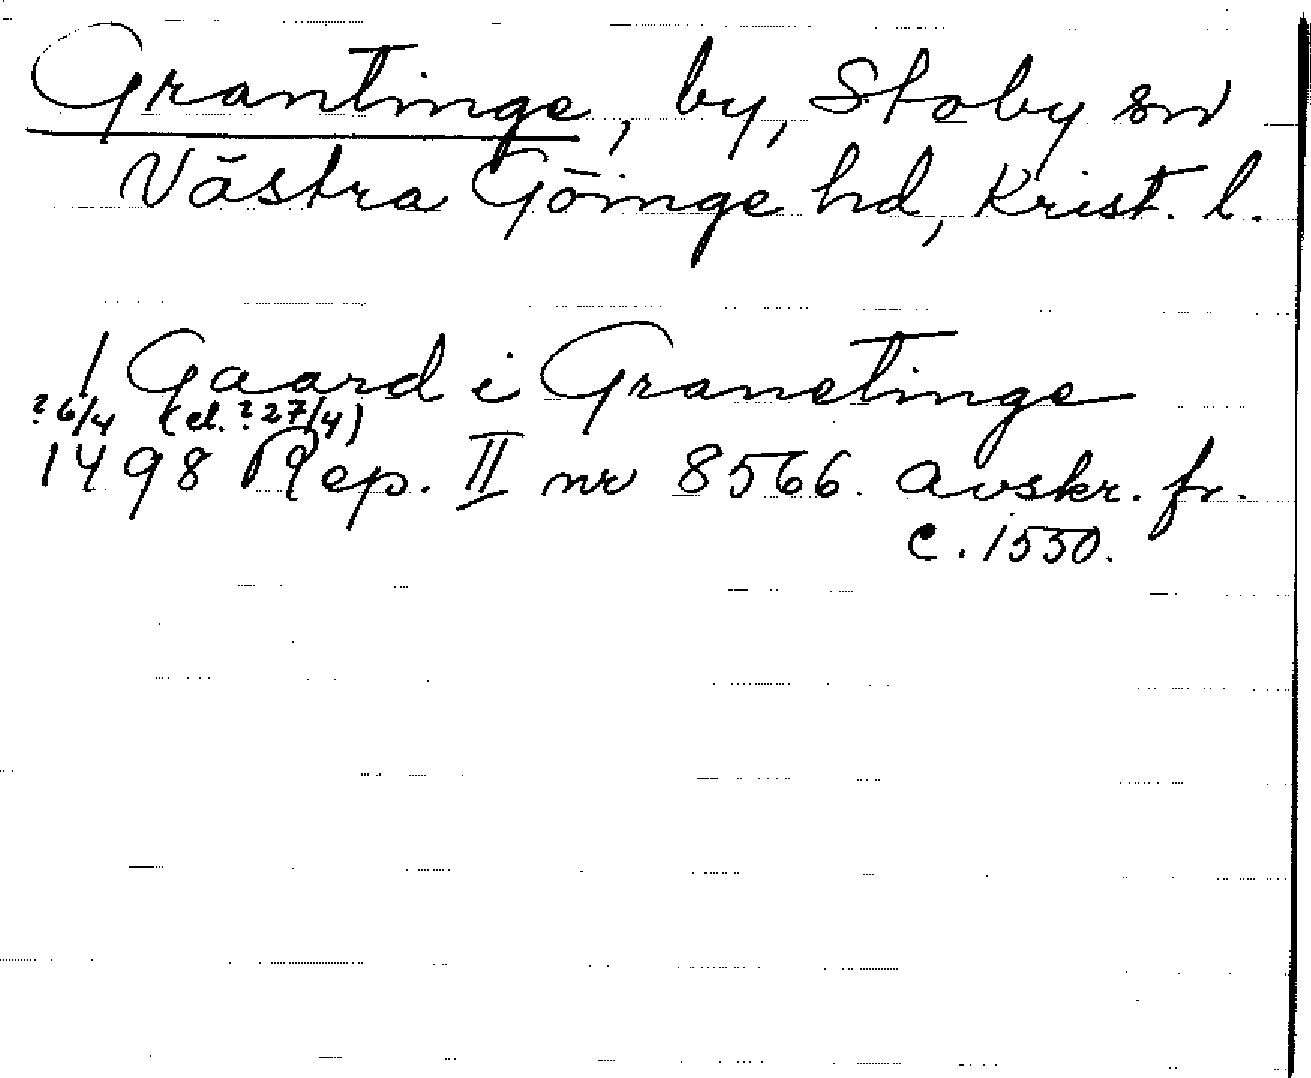 Grantinge, by, Stoby sn
Västra Göinge hd, Krist. l.
1 Gaard i Granetinge
? 6/4 (el. ? 27/4)
1498 Rep. II nr 8566. Avskr. fr.
c. 1550.